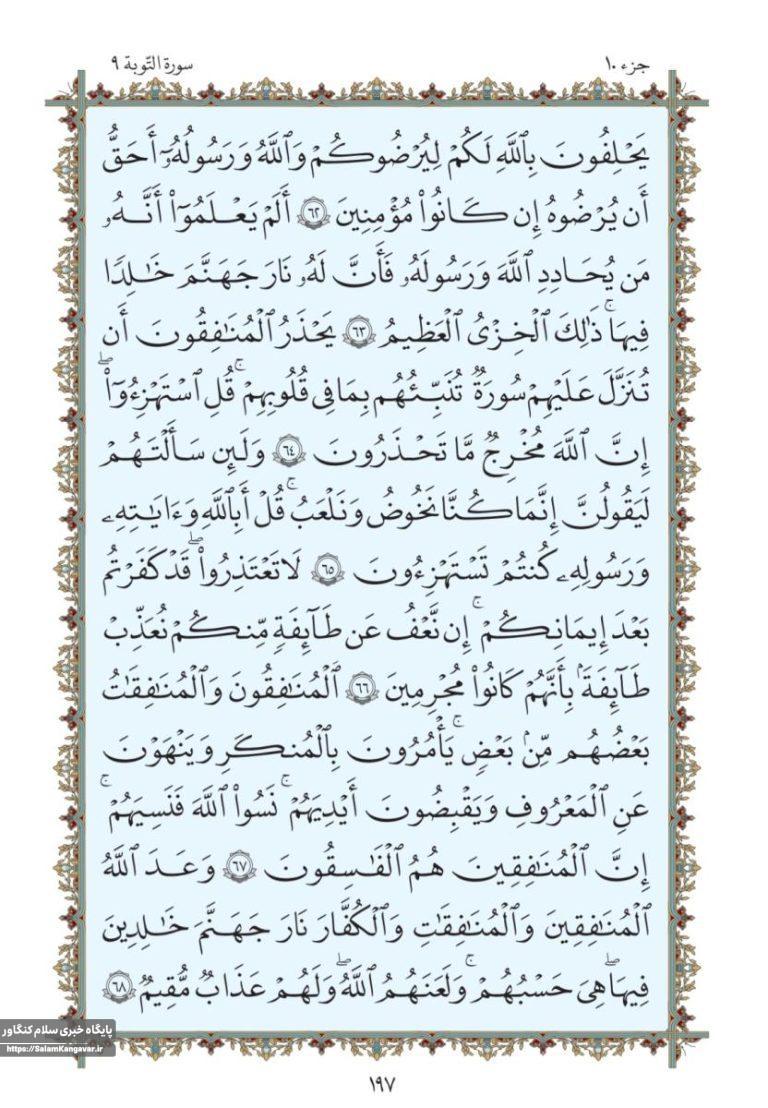 جزء ١٠
سورة التّوبة ٩
يَحۡلِفُونَ بِٱللَّهِ لَكُمۡ لِيُرۡضُوكُمۡ وَٱللَّهُ وَرَسُولُهُۥٓ أَحَقُّ
أَن يُرۡضُوهُ إِن كَانُواْ مُؤۡمِنِينَ ٦٢ أَلَمۡ يَعۡلَمُوٓاْ أَنَّهُۥ
مَن يُحَادِدِ ٱللَّهَ وَرَسُولَهُۥ فَأَنَّ لَهُۥ نَارَ جَهَنَّمَ خَٰلِدٗا
فِيهَاۚ ذَٰلِكَ ٱلۡخِزۡيُ ٱلۡعَظِيمُ ٦٣ يَحۡذَرُ ٱلۡمُنَٰفِقُونَ أَن
تُنَزَّلَ عَلَيۡهِمۡ سُورَةٞ تُنَبِّئُهُم بِمَا فِي قُلُوبِهِمۡۚ قُلِ ٱسۡتَهۡزِءُوٓاْ
إِنَّ ٱللَّهَ مُخۡرِجٞ مَّا تَحۡذَرُونَ ٦٤ وَلَئِن سَأَلۡتَهُمۡ
لَيَقُولُنَّ إِنَّمَا كُنَّا نَخُوضُ وَنَلۡعَبُۚ قُلۡ أَبِٱللَّهِ وَءَايَٰتِهِۦ
وَرَسُولِهِۦ كُنتُمۡ تَسۡتَهۡزِءُونَ ٦٥ لَا تَعۡتَذِرُواْ قَدۡ كَفَرۡتُم
بَعۡدَ إِيمَٰنِكُمۡۚ إِن نَّعۡفُ عَن طَآئِفَةٖ مِّنكُمۡ نُعَذِّبۡ
طَآئِفَةَۢ بِأَنَّهُمۡ كَانُواْ مُجۡرِمِينَ ٦٦ ٱلۡمُنَٰفِقُونَ وَٱلۡمُنَٰفِقَٰتُ
بَعۡضُهُم مِّنۢ بَعۡضٖۚ يَأۡمُرُونَ بِٱلۡمُنكَرِ وَيَنۡهَوۡنَ
عَنِ ٱلۡمَعۡرُوفِ وَيَقۡبِضُونَ أَيۡدِيَهُمۡۚ نَسُواْ ٱللَّهَ فَنَسِيَهُمۡۚ
إِنَّ ٱلۡمُنَٰفِقِينَ هُمُ ٱلۡفَٰسِقُونَ ٦٧ وَعَدَ ٱللَّهُ
ٱلۡمُنَٰفِقِينَ وَٱلۡمُنَٰفِقَٰتِ وَٱلۡكُفَّارَ نَارَ جَهَنَّمَ خَٰلِدِينَ
فِيهَاۖ هِيَ حَسۡبُهُمۡۚ وَلَعَنَهُمُ ٱللَّهُۖ وَلَهُمۡ عَذَابٞ مُّقِيمٞ ٦٨
پایگاه خبری سلام کنگاور
https://SalamKangavar.ir
١٩٧